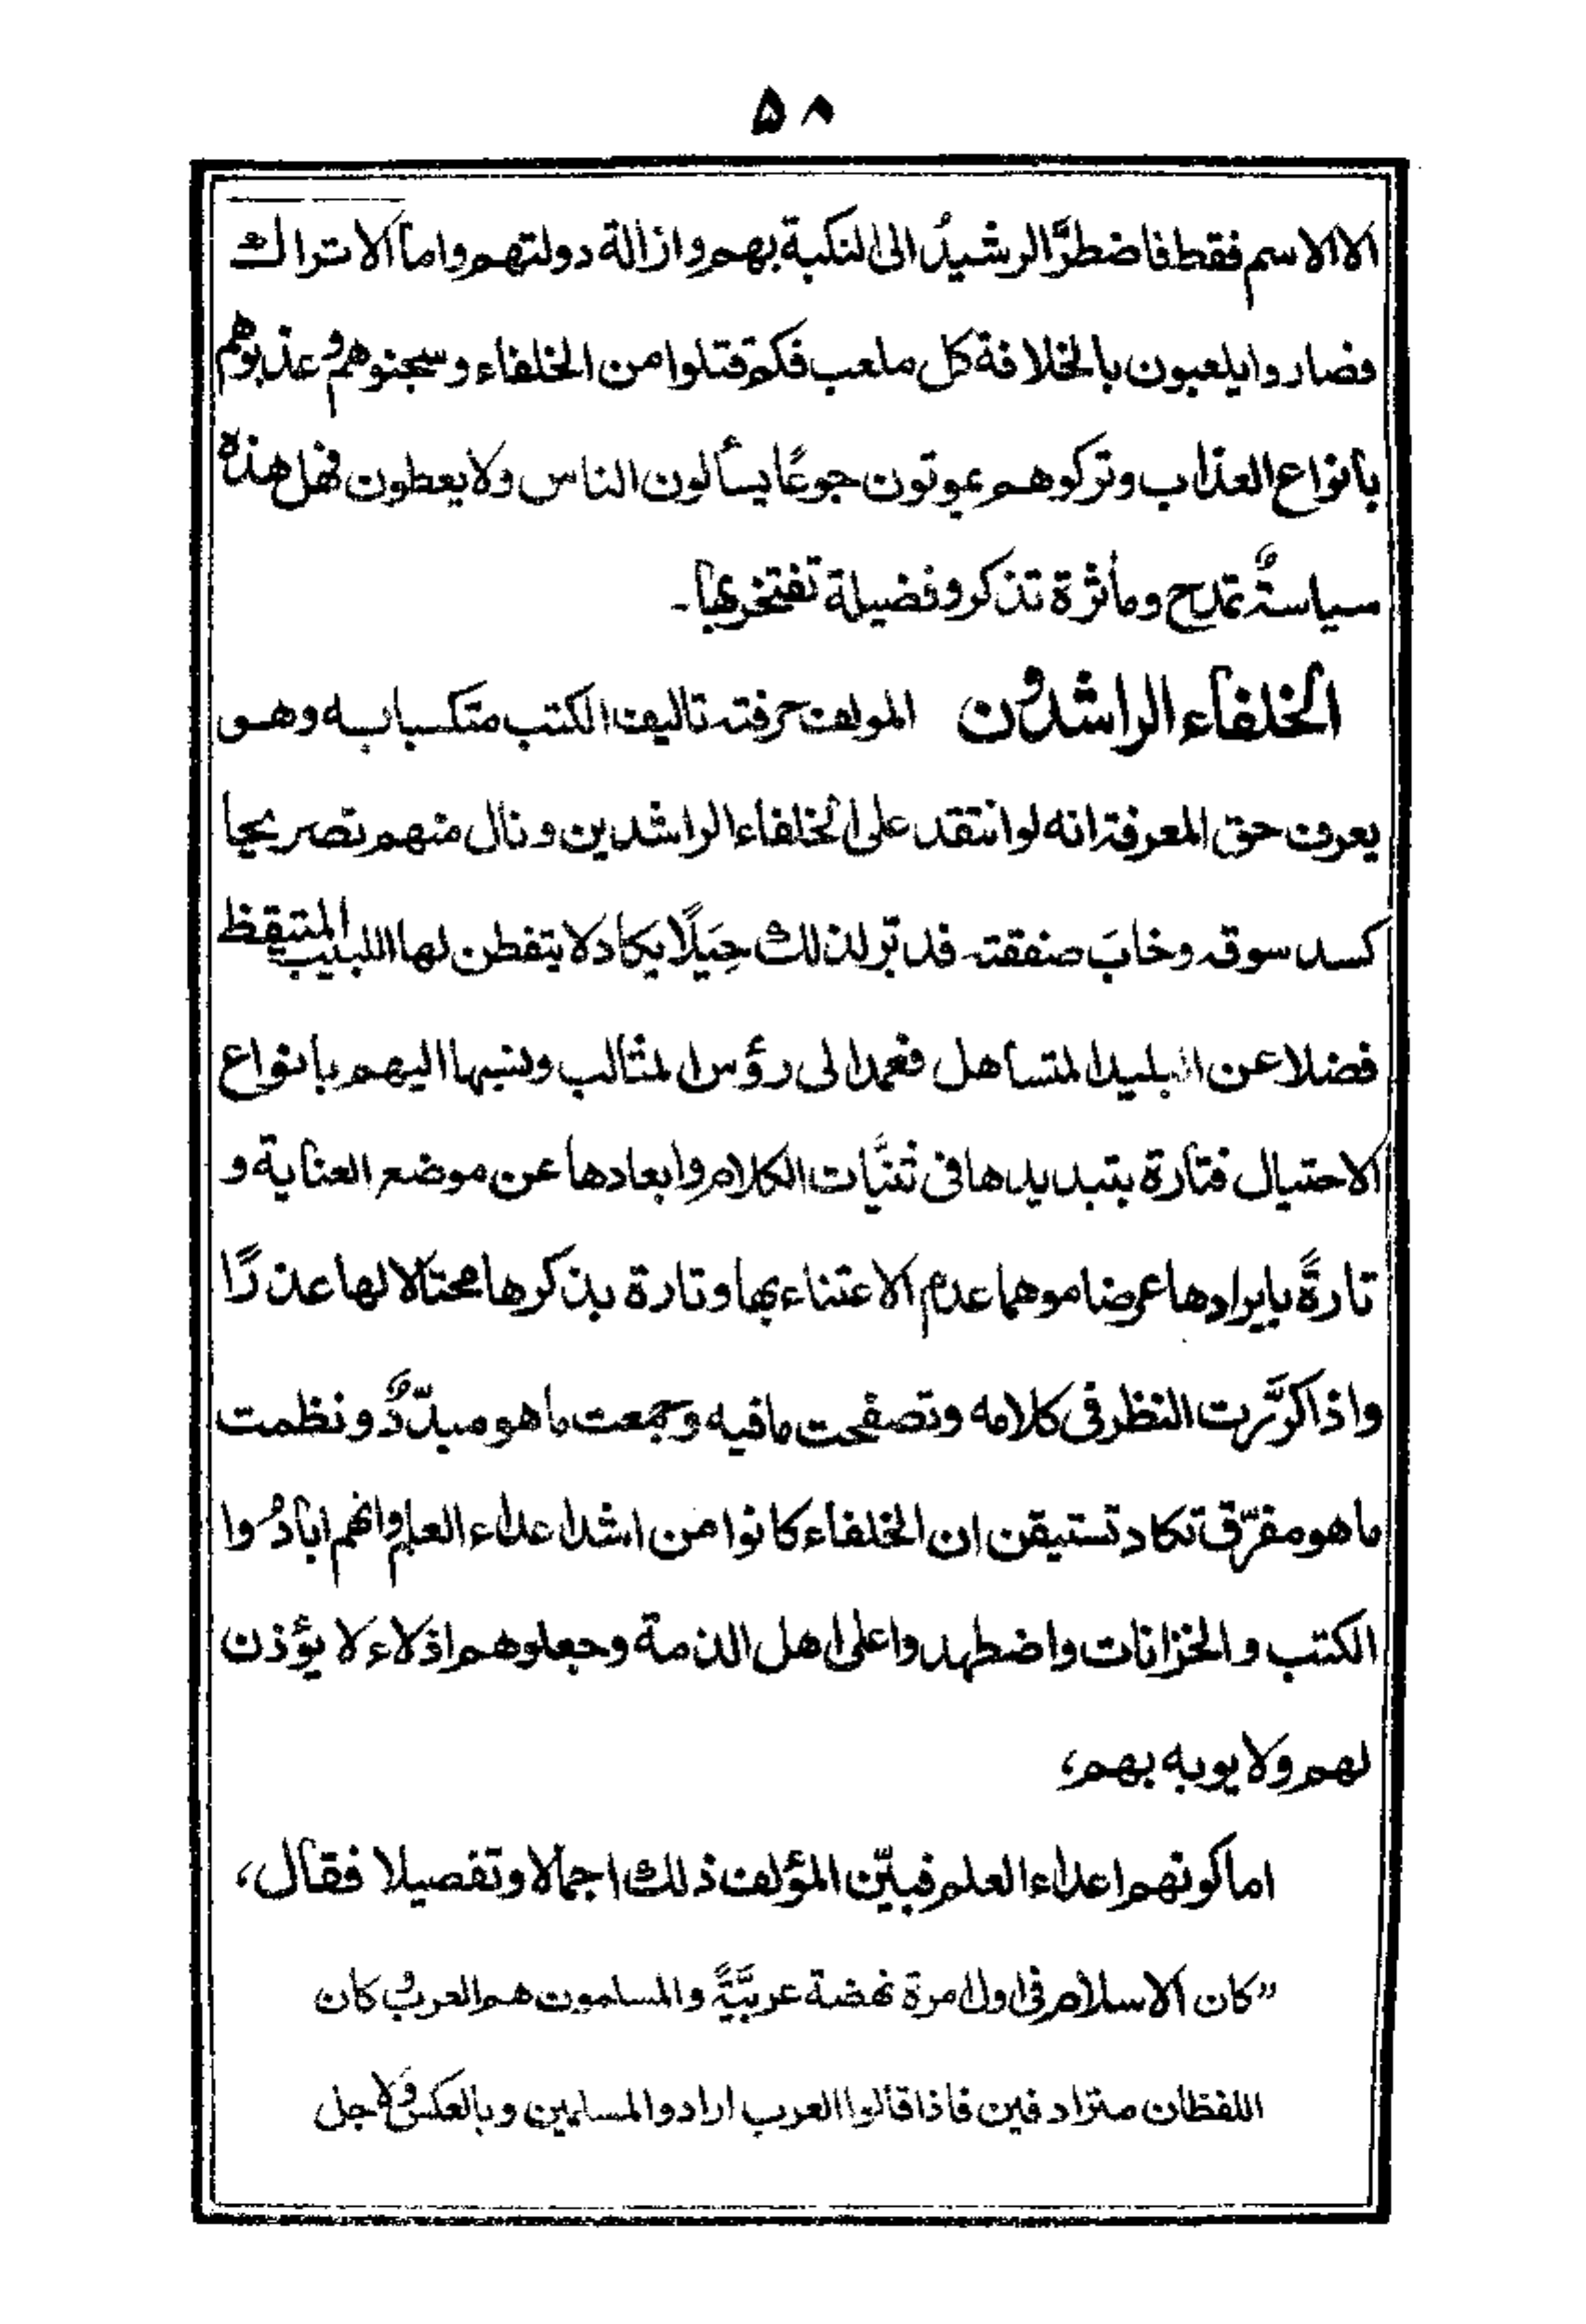 ۵۸
الا الاسم فقط فاضطرَّ الرشيدُ الى النكبة بهم وازالة دولتهم واما الاتراك
فصاروا يلعبون بالخلافة كل ملعب فكم قتلوا من الخلفاء وسجنوهم وعذبوهم
بانواع العذاب وتركوهم يموتون جوعًا يسألون الناس ولا يعطون فهل هذه
سياسةٌ تمدح ومأثرة تذكر وفضيلة تفتخر بها۔
الخلفاء الراشدون المولف حرفته تاليف الكتب متكسبا به وهو
يعرف حق المعرفة انه لو انتقد على الخلفاء الراشدين ونال منهم تصريحا
كسد سوقه وخابَ صفقته فدبّر لذلك حِيَلًا يكاد لا يتفطن لها اللبيب المتيقظ
فضلا عن البليد المتساهل فعمد الى رؤس المثالب ونسبها اليهم بانواع
الاحتيال فتارة بتبديدها فى ثنيَّات الكلام وابعادها عن موضع العناية و
تارةً بايرادها عرضا موهما عدم الاعتناء بها وتارة بذكرها محتالا لها عذرًا
واذا كرَّرت النظر فى كلامه وتصفحت مافيه وجمعت ما هو مبدّدٌ ونظمت
ما هو مفرّق تكاد تستيقن ان الخلفاء كانوا من اشد اعداء العلم وانهم ابادُوا
الكتب والخزانات واضطهدوا على اهل الذمة وجعلوهم اذلاء لا يؤذن
لهم ولا يوبه بهم،
اما كونهم اعداء العلم فبيّن المؤلف ذلك اجمالا وتفصيلا فقال،
”كان الاسلام فى اول مرة نهضة عربيَّةً والمسلمون هم العربُ كان
اللفظان مترادفين فاذا قالوا العرب ارادوا المسلمين وبالعكس ولاجل